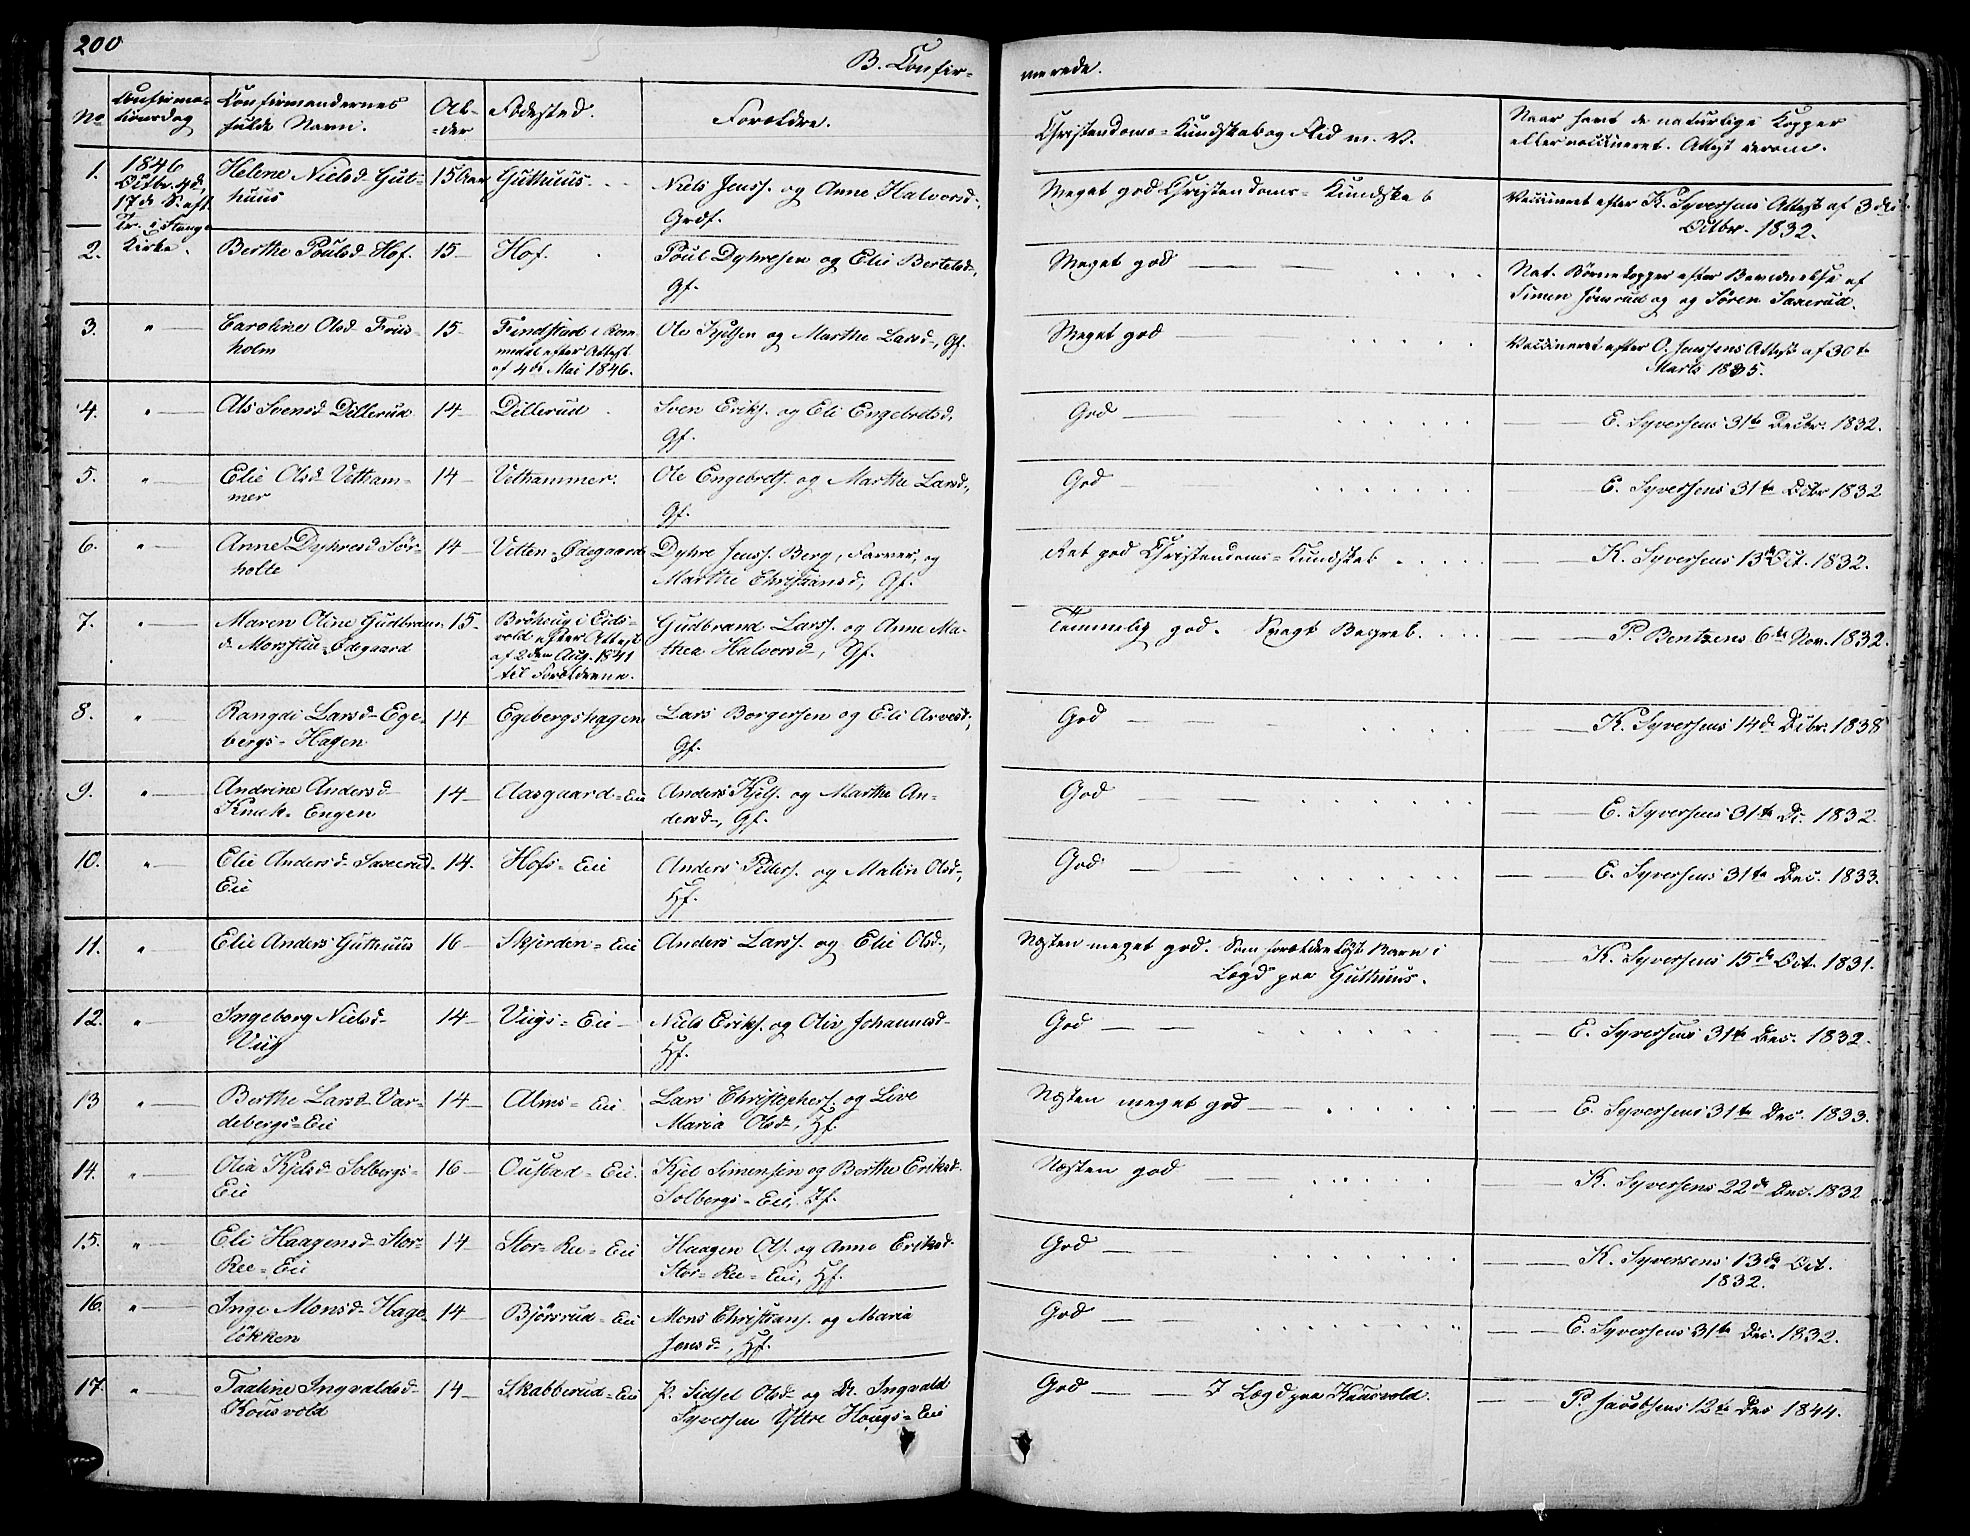 200
B. Confir-
merede.
No
Confirma-
tionsdag
Confirmandernes
fulde Navn.
Al-
-der
Fødested.
Forældre.
Christendoms-Kundskab og Flid m. V.
Naar havt de naturlige Kopper
eller vaccineret. Attest derom.
1.
1846
Octbr. 4de,
17de S. eft.
Tr. i Stange
Kirke.
Helene Nielsd. Gut-
huus
15 Aar
Guthuus.
Niels Jenss. og Anne Halvorsd.,
Grdf.
Meget god Christendoms-Kundskab
Vaccineret efter K. Syversens Attest af 3die
Octbr. 1832.
2.
Berthe Poulsd. Hof.
15
Hof.
Poul Dyhresen og Elie Bertelsd.,
Gf.
Meget god
Nat. Børnekopper efter Bevidnelse af
Simen og Søren Saxerud.
3.
"
Caroline Olsd. Friis-
holm
15
Findstad i Rom
medal efter Attest
af 4de Mai 1846.
Ole Kjelsen og Marthe Larsd., Gf.
Meget god
Vaccineret efter O. Jenssens Attest af 30te
Marts 1835.
4.
"
Als Svensd. Ditterud
14
Ditterud
Sven Eriks. og Eli Engebretsd.,
Gf.
God
E. Syversens 31te Decbr. 1832.
5.
"
Elie Olsd. Vetham-
mer
14
Vethammer.
Ole Engebrets. og Marthe Larsd.,
Gf.
God
E. Syversens 31te Dcbr 1832
6.
"
Anne Dyhresd. Sør-
holte
14
Vetten-Ødegaard
Dyhre Jenss. Berg, Farver, og
Marthe Christiansd., Gf.
Ret god Christendoms-Kundskab
K. Syversens 13de Oct. 1832.
7.
"
Maren Oline Gudbran
d. Morstue-Ødegaard
15
Bröhaug i Eids-
vold efter Attest
af 2den Aug. 1841
til Forældrene.
Gudbrand Larss. og Anne Ma-
thea Halvorsd., Gf.
Temmelig god. Svagt Begreb.
P. Bentzens 6te Nov. 1832.
8.
"
Rangdi Larsd. Ege-
bergs-Hagen
14
Egebergshagen
Lars Borgersen og Eli Arvesd.,
Gf.
God
K. Syversens 14de Dcbr. 1838
9.
"
Andrine Andersd.
Knuk-Engen
14
Aasgaard-Eie
Anders Kjels. og Marthe An-
dersd., Gf.
God
E. Syversens 31te Dc. 1832.
10.
"
Elie Andersd. Saxerud
Eie
14.
Hofs-Eie
Anders Peders. og Malin Olsd.,
Hf.
God
E. Syversens 31te Dec. 1833.
11.
"
Elie Anders Guthuus
16
Skjerden-Eie
Anders Larss. og Elie Olsd.,
Næsten meget god. Som forældreløst Barn i
Lægd paa Guthuus.
K. Syversens 15de Oct. 1831.
12.
"
Ingeborg Nielsd.
Viig
14
Viigs-Eie
Niels Eriks. og Oliv Johannesd.
Hf.
God
E. Syversens 31te Dec. 1832.
13
"
Berthe Larsd. Var-
debergs-Eie
14
Alms-Eie
Lars Christophers. og Live
Maria Olsd., Hf.
Næsten meget god
E. Syversens 31te Dec. 1833.
14.
"
Olia Kjelsd. Solbergs-
Eie
16
Oustad-Eie.
Kjel Simensen og Berthe Eriksd.
Solbergs-Eie, If.
Næsten god
K. Syversens 22de Dec. 1832
15.
"
Eli Haagensd. Stor-
Ree-Eie
14
Stor-Ree-Eie
Haagen Ols. og Anne Eriksd.
Stor-Ree-Eie, Hf.
God
K. Syversens 13de Oct.
1832.
16.
"
Inge Monsd. Hage-
løkken
14
Bjørsrud-Eie
Mons Christians. og Maria
Jensd., Hf.
God
E. Syversens 31te Dec. 1832.
17.
"
Taaline Ingvaldsd.
Kousvold
14
Skabberud-Eie
P. Sidsel Olsd. og D. Ingvald
Syversen Yttre Hougs-Eie
God
I Lægd paa Kausvold.
P. Jacobsens 12te Dec 1844.